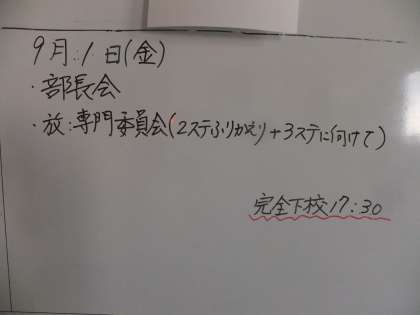 9月1日(金)
・部長会
・放:専門委員会(2ステふりかえり+3ステに向けて)
完全下校17:30